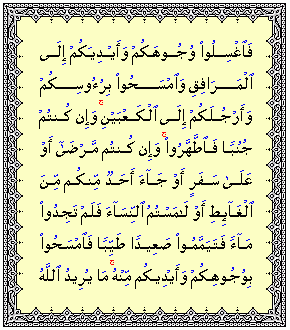 فَٱغۡسِلُواْ وُجُوهَكُمۡ وَأَيۡدِيَكُمۡ إِلَى
ٱلۡمَرَافِقِ وَٱمۡسَحُواْ بِرُءُوسِكُمۡ
وَأَرۡجُلَكُمۡ إِلَى ٱلۡكَعۡبَيۡنِۚ وَإِن كُنتُمۡ
جُنُبٗا فَٱطَّهَّرُواْۚ وَإِن كُنتُم مَّرۡضَىٰٓ أَوۡ
عَلَىٰ سَفَرٍ أَوۡ جَآءَ أَحَدٞ مِّنكُم مِّنَ
ٱلۡغَآئِطِ أَوۡ لَٰمَسۡتُمُ ٱلنِّسَآءَ فَلَمۡ تَجِدُواْ
مَآءٗ فَتَيَمَّمُواْ صَعِيدٗا طَيِّبٗا فَٱمۡسَحُواْ
بِوُجُوهِكُمۡ وَأَيۡدِيكُم مِّنۡهُۚ مَا يُرِيدُ ٱللَّهُ